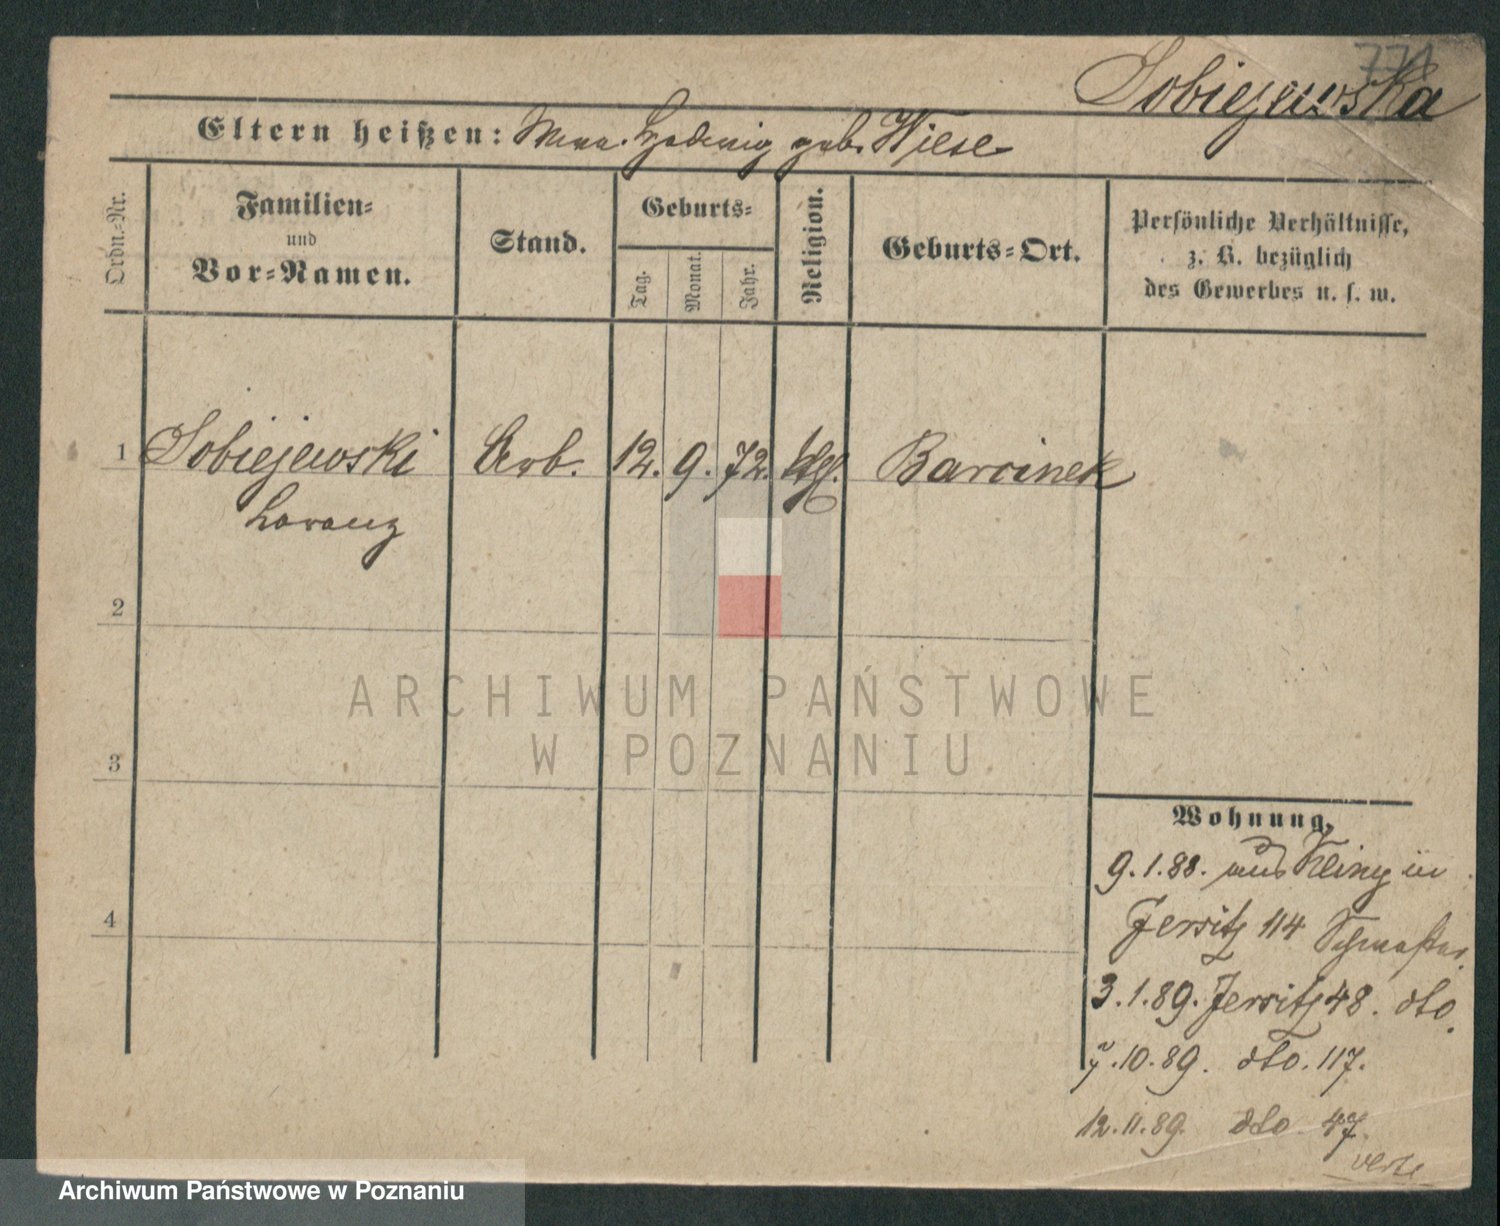 771
Sobiejewska
Eltern heißen: Hedwig geb. Wiese
Ordn.-Nr.
Familien-
und
Vor-Namen.
Stand.
Geburts-
Tag.
Monat.
Jahr.
Religion.
Geburts-Ort.
Persönliche Verhältnisse,
z. B. bezüglich
des Gewerbes u. s. w.
1 Sobiejewski Arb. 12. 9. 72. Barcinek
Lorenz
2
3
4
ARCHIWUM PAŃSTWOWE
W POZNANIU
Wohnung.
9.1.88. aus in
Jersitz 114
3.1.89. Jersitz 48. dto.
7.10.89. dto. 117.
12.11.89. dto. 47.
verte
Archiwum Państwowe w Poznaniu